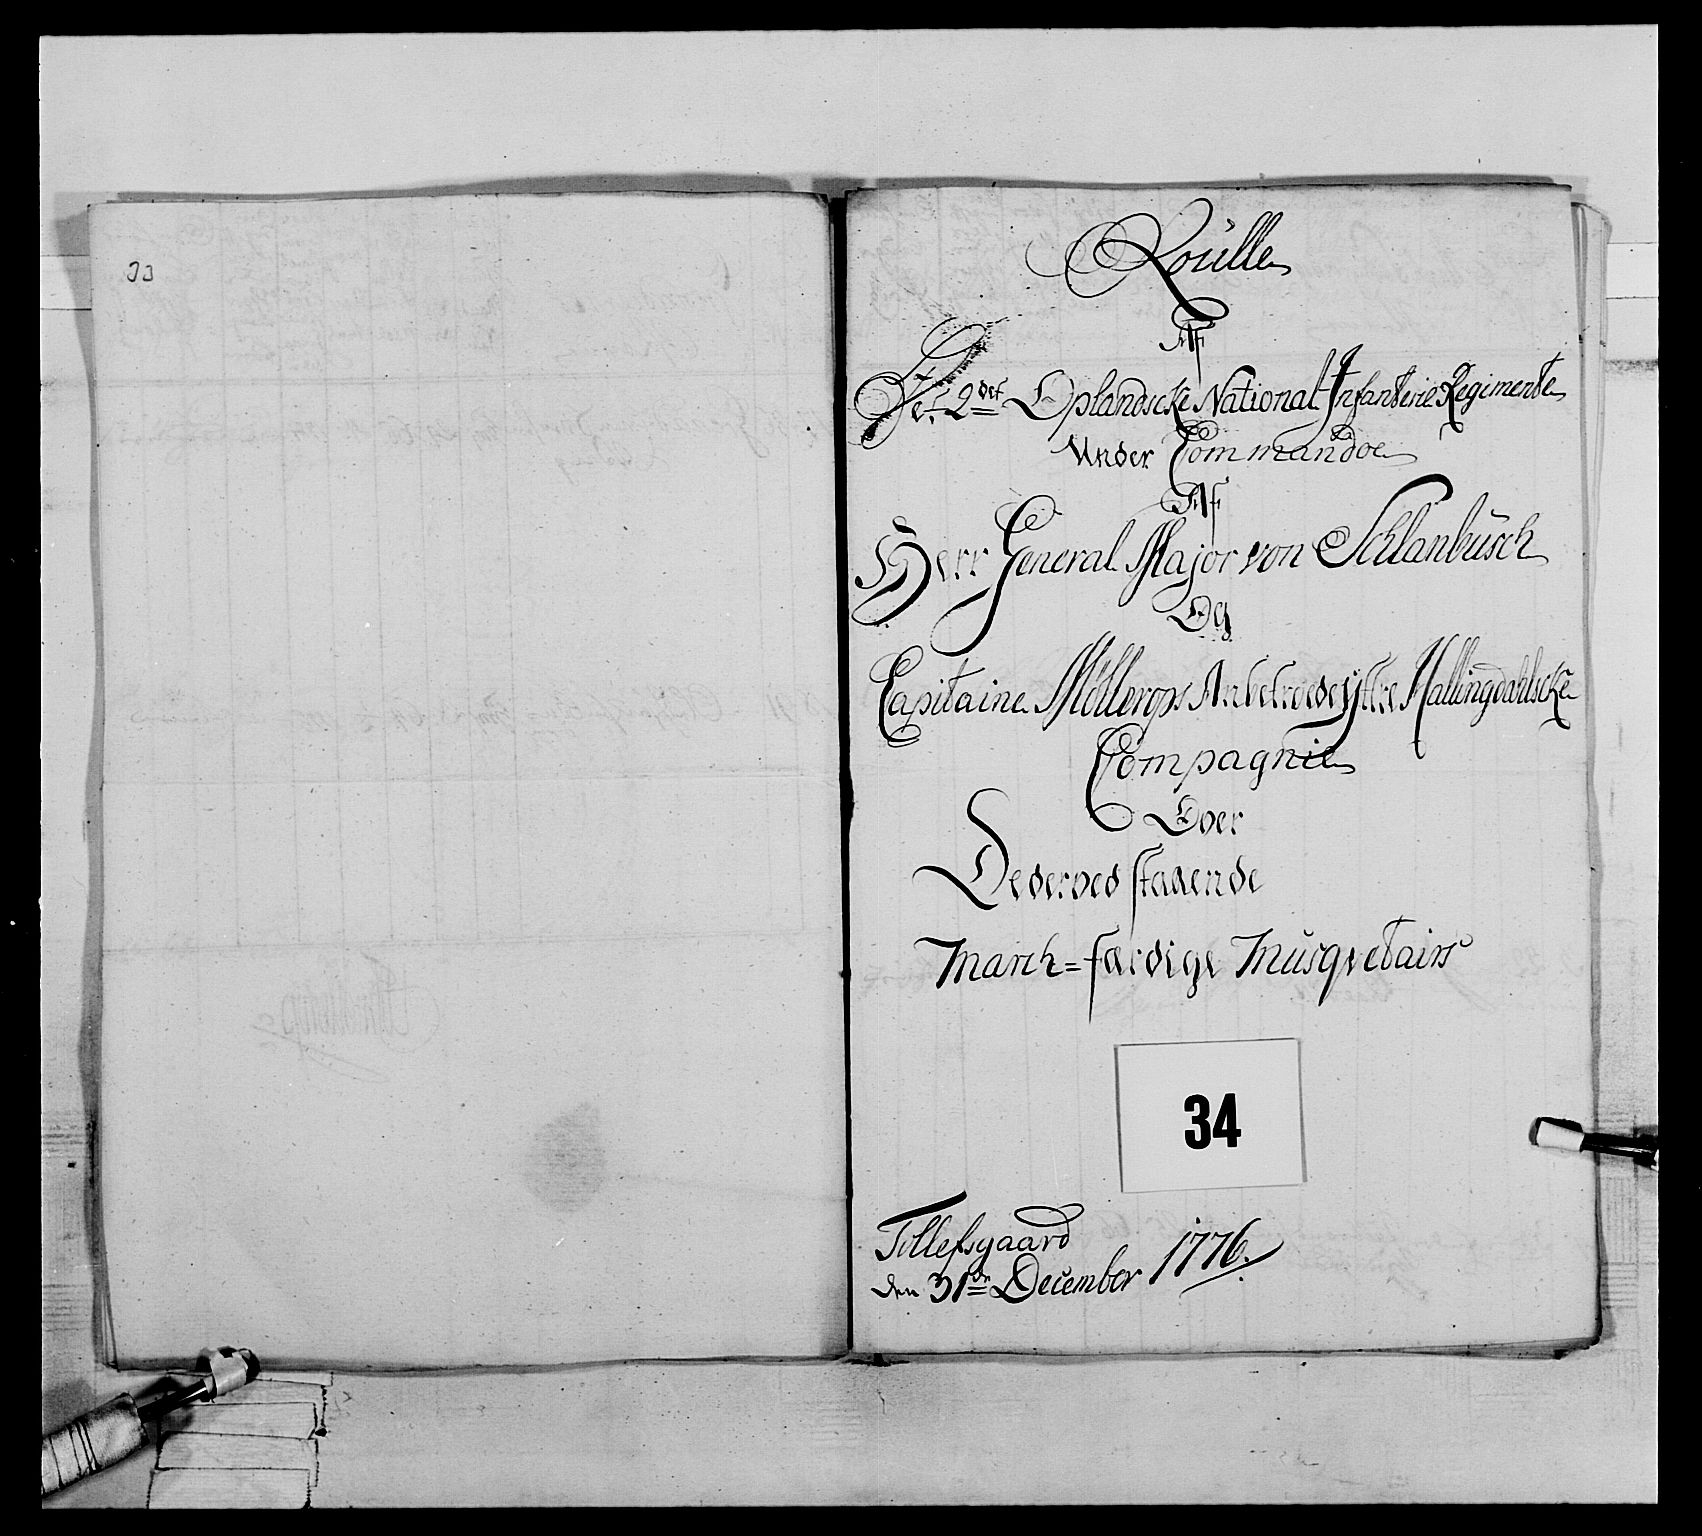 33
Roülle
Af
Det 2det Oplandscke National Infanterie Regimente
Under Commandoe
Af
Herr General Major von Schlanbüsch
Og
Capitaine Möllerops Anbetroede ÿttre Hallingdahlscke
Compagnie
Over
De derved staaende
March=færdige Müsqvetairs
34
Tollefsgaard
den 31de December 1776.